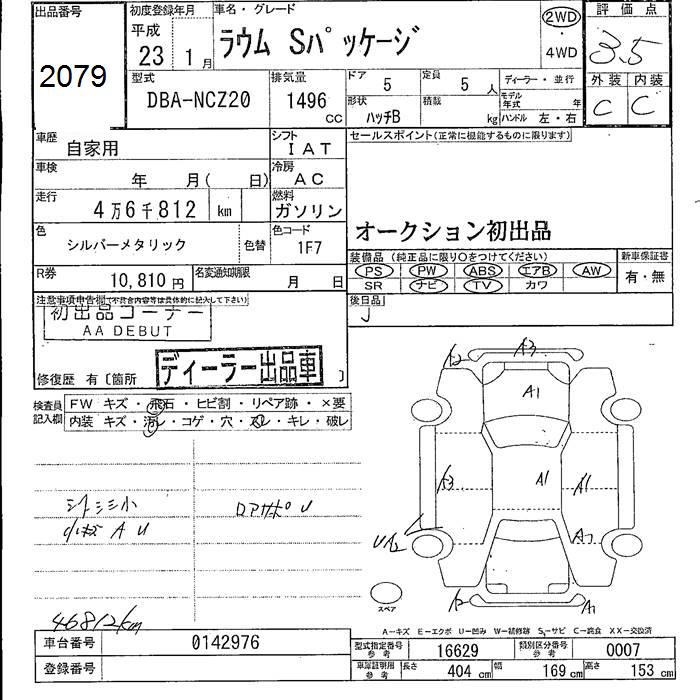 出品番号 初度登録年月 車名・グレード 評価点
平成 23 1月 ラウム Sパッケージ 2WD ・ 4WD 3.5
2079
型式 排気量 ドア 定員 ディーラー・並行 外装 内装
DBA-NCZ20 1496 CC 5 5人 モデル年式 年 C C
形状 ハッチB 積載 kg ハンドル 左・右
車歴 自家用 シフト IAT セールスポイント(正常に機能するものに限ります)
車検 年 月( 日) 冷房 AC
走行 4万6千812 km 燃料 ガソリン
オークション初出品
色 シルバーメタリック 色替 色コード 1F7
装備品 (純正品に限り○をつけてください) 新車保証書
PS PW ABS エアB AW 有・無
SR ナビ TV カワ
R券 10,810円 名変通知期限 月 日
注意事項申告欄(不具合内容等は具体的に記入して下さい) 後日品
初出品コーナー J
AA DEBUT
ディーラー出品車
修復歴 有〔箇所 〕
検査員記入欄 FW キズ・飛石・ヒビ割・リペア跡・×要
内装 キズ・汚レ・コゲ・穴・スレ・キレ・破レ
A3
A1
A1
A1
シートシミ小
ロアサポU
A U
46812km
A1
スペア
A―キズ E―エクボ U―凹み W―補修跡 S―サビ C―腐食 XX―交換済
車台番号 0142976
型式指定番号 参考 16629 類別区分番号 参考 0007
登録番号
車庫証明用 参考 長さ 404 cm 幅 169 cm 高さ 153 cm